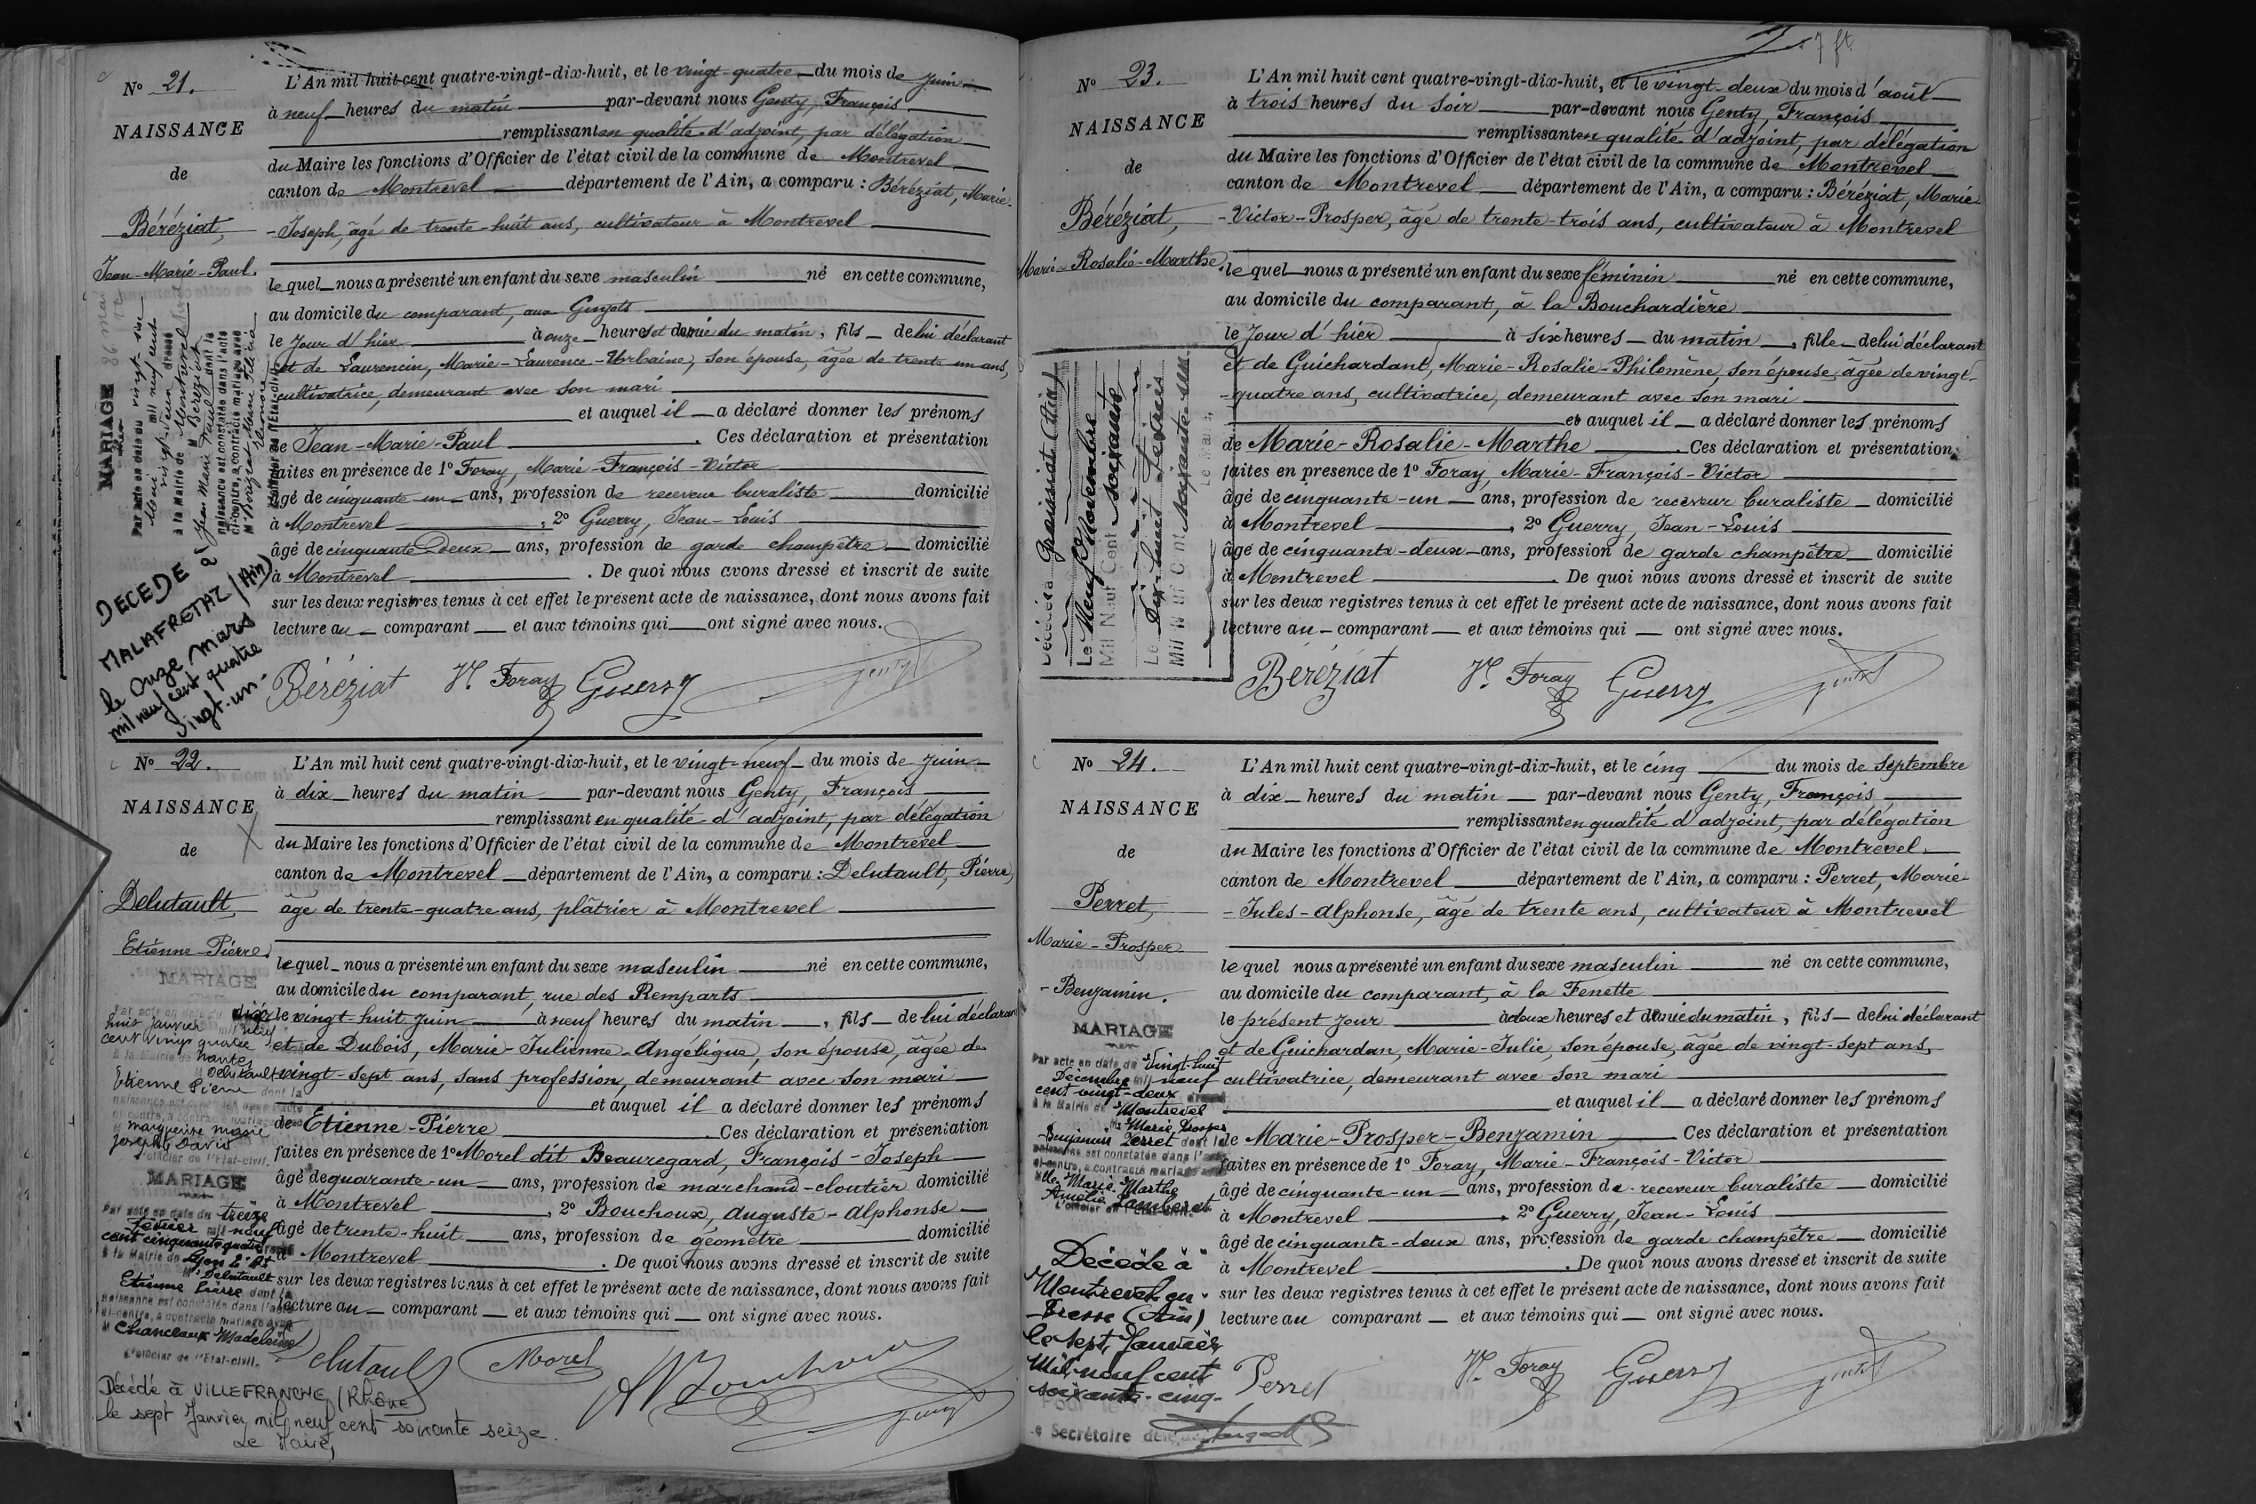 N° 21.
NAISSANCE
de
Béréziat,
Jean-Marie-Paul.
L'An mil huit cent quatre-vingt-dix-huit, et le vingt-quatre du mois de Juin
à neuf heures du matin par-devant nous Genty, François
remplissant en qualité d'adjoint, par délégation
du Maire les fonctions d'Officier de l'état civil de la commune de Montrevel
canton de Montrevel département de l'Ain, a comparu : Béréziat, Marie-
-Joseph, âgé de trente-huit ans, cultivateur à Montrevel
le quel nous a présenté un enfant du sexe masculin né en cette commune,
au domicile du comparant, aux
le jour d'hier à onze heures et demie du matin, fils de lui déclarant
et de Laurencin, Marie-Laurence-Urbaine, son épouse, âgée de trente un ans,
cultivatrice, demeurant avec son mari
et auquel il a déclaré donner les prénoms
de Jean-Marie-Paul. Ces déclaration et présentation
faites en présence de 1° Foray, Marie-François-Victor
âgé de cinquante-un ans, profession de receveur buraliste domicilié
à Montrevel, 2° Guerry, Jean-Louis
âgé de cinquante-deux ans, profession de garde champêtre domicilié
à Montrevel. De quoi nous avons dressé et inscrit de suite
sur les deux registres tenus à cet effet le présent acte de naissance, dont nous avons fait
lecture au comparant et aux témoins qui ont signé avec nous.
Béréziat Vr Foray Guerry Genty
MARIAGE
Par acte en date du vingt six
Mai mil neuf cent
vingt-un dressé
à la Mairie de Montrevel
M Béréziat
Jean Marie Paul dont la
naissance est constatée dans l'acte
ci-contre, a contracté mariage avec
L'officier de l'Etat-civil.
DECEDE à
MALAFRETAZ (Ain)
le Onze Mars
mil neuf cent quatre
vingt-un.
N° 22.
NAISSANCE
de
Delutault,
Etienne-Pierre.
L'An mil huit cent quatre-vingt-dix-huit, et le vingt-neuf du mois de Juin
à dix heures du matin par-devant nous Genty, François
remplissant en qualité d'adjoint, par délégation
du Maire les fonctions d'Officier de l'état civil de la commune de Montrevel
canton de Montrevel département de l'Ain, a comparu : Delutault, Pierre,
âgé de trente-quatre ans, plâtrier à Montrevel
le quel nous a présenté un enfant du sexe masculin né en cette commune,
au domicile du comparant, rue des Remparts
le vingt huit Juin à neuf heures du matin, fils de lui déclarant
et de Dubois, Marie-Julienne-Angélique, son épouse, âgée de
vingt-sept ans, sans profession, demeurant avec son mari
et auquel il a déclaré donner les prénoms
de Etienne-Pierre. Ces déclaration et présentation
faites en présence de 1° Morel dit Beauregard, François-Joseph
âgé de quarante-un ans, profession de marchand-cloutier domicilié
à Montrevel, 2° Bouchoux, Auguste-Alphonse
âgé de trente-huit ans, profession de géomètre domicilié
à Montrevel. De quoi nous avons dressé et inscrit de suite
sur les deux registres tenus à cet effet le présent acte de naissance, dont nous avons fait
lecture au comparant et aux témoins qui ont signé avec nous.
Delutault Morel Bouchoux Genty
MARIAGE
Par acte en date du dix
huit Janvier mil neuf
cent vingt quatre
à la Mairie de Nantes
M Delutault
Etienne Pierre dont la
naissance est constatée dans l'acte
ci-contre, a contracté mariage avec
M Marguerite Marie
Joseph David
L'officier de l'Etat-civil.
MARIAGE
Par acte en date du treize
Février mil neuf
cent cinquante quatre dressé
à la Mairie de Lyon
Mr Delutault
Etienne Pierre dont la
naissance est constatée dans l'acte
ci-contre, a contracté mariage avec
M Chanceaux Madeleine
L'officier de l'Etat-civil.
Décédé à VILLEFRANCHE (Rhône)
le sept Janvier mil neuf cent soixante seize.
Le Maire,
N° 23.
NAISSANCE
de
Béréziat,
Marie-Rosalie-Marthe.
L'An mil huit cent quatre-vingt-dix-huit, et le vingt-deux du mois d'août
à trois heures du soir par-devant nous Genty, François
remplissant en qualité d'adjoint, par délégation
du Maire les fonctions d'Officier de l'état civil de la commune de Montrevel
canton de Montrevel département de l'Ain, a comparu : Béréziat, Marie-
-Victor-Prosper, âgé de trente-trois ans, cultivateur à Montrevel
le quel nous a présenté un enfant du sexe féminin né en cette commune,
au domicile du comparant, à la Bouchardière
le jour d'hier à six heures du matin, fille de lui déclarant
et de Guichardant, Marie-Rosalie-Philomène, son épouse, âgée de vingt-
-quatre ans, cultivatrice, demeurant avec son mari
et auquel il a déclaré donner les prénoms
de Marie-Rosalie-Marthe. Ces déclaration et présentation
faites en présence de 1° Foray, Marie-François-Victor
âgé de cinquante-un ans, profession de receveur buraliste domicilié
à Montrevel, 2° Guerry, Jean-Louis
âgé de cinquante-deux ans, profession de garde champêtre domicilié
à Montrevel. De quoi nous avons dressé et inscrit de suite
sur les deux registres tenus à cet effet le présent acte de naissance, dont nous avons fait
lecture au comparant et aux témoins qui ont signé avec nous.
Béréziat Vr Foray Guerry Genty
Décédée à Graissiat (Ain)
Le Neuf Novembre
Mil Neuf Cent soixante
Le dix huit Février
Mil Neuf Cent soixante un
Le Maire,
N° 24.
NAISSANCE
de
Perret,
Marie-Prosper
-Benjamin.
L'An mil huit cent quatre-vingt-dix-huit, et le cinq du mois de Septembre
à dix heures du matin par-devant nous Genty, François
remplissant en qualité d'adjoint, par délégation
du Maire les fonctions d'Officier de l'état civil de la commune de Montrevel
canton de Montrevel département de l'Ain, a comparu : Perret, Marie-
-Jules-Alphonse, âgé de trente ans, cultivateur à Montrevel
le quel nous a présenté un enfant du sexe masculin né en cette commune,
au domicile du comparant, à la Fenette
le présent jour à deux heures et demie du matin, fils de lui déclarant
et de Guichardan, Marie-Julie, son épouse, âgée de vingt-sept ans,
cultivatrice, demeurant avec son mari
et auquel il a déclaré donner les prénoms
de Marie-Prosper-Benjamin. Ces déclaration et présentation
faites en présence de 1° Foray, Marie-François-Victor
âgé de cinquante-un ans, profession de receveur buraliste domicilié
à Montrevel, 2° Guerry, Jean-Louis
âgé de cinquante-deux ans, profession de garde champêtre domicilié
à Montrevel. De quoi nous avons dressé et inscrit de suite
sur les deux registres tenus à cet effet le présent acte de naissance, dont nous avons fait
lecture au comparant et aux témoins qui ont signé avec nous.
Perret Vr Foray Guerry Genty
MARIAGE
Par acte en date du Vingt-huit
Décembre mil neuf
cent vingt-deux dressé
à la Mairie de Montrevel
Mr Marie Prosper
Benjamin Perret dont la
naissance est constatée dans l'acte
ci-contre, a contracté mariage avec
Mlle Marie-Marthe
Amélie Lamberet
L'officier de l'Etat-civil.
Décédé à
Montrevel-en-
Bresse (Ain)
le sept Janvier
Mil-neuf cent
soixante-cinq.
Le Secrétaire délégué